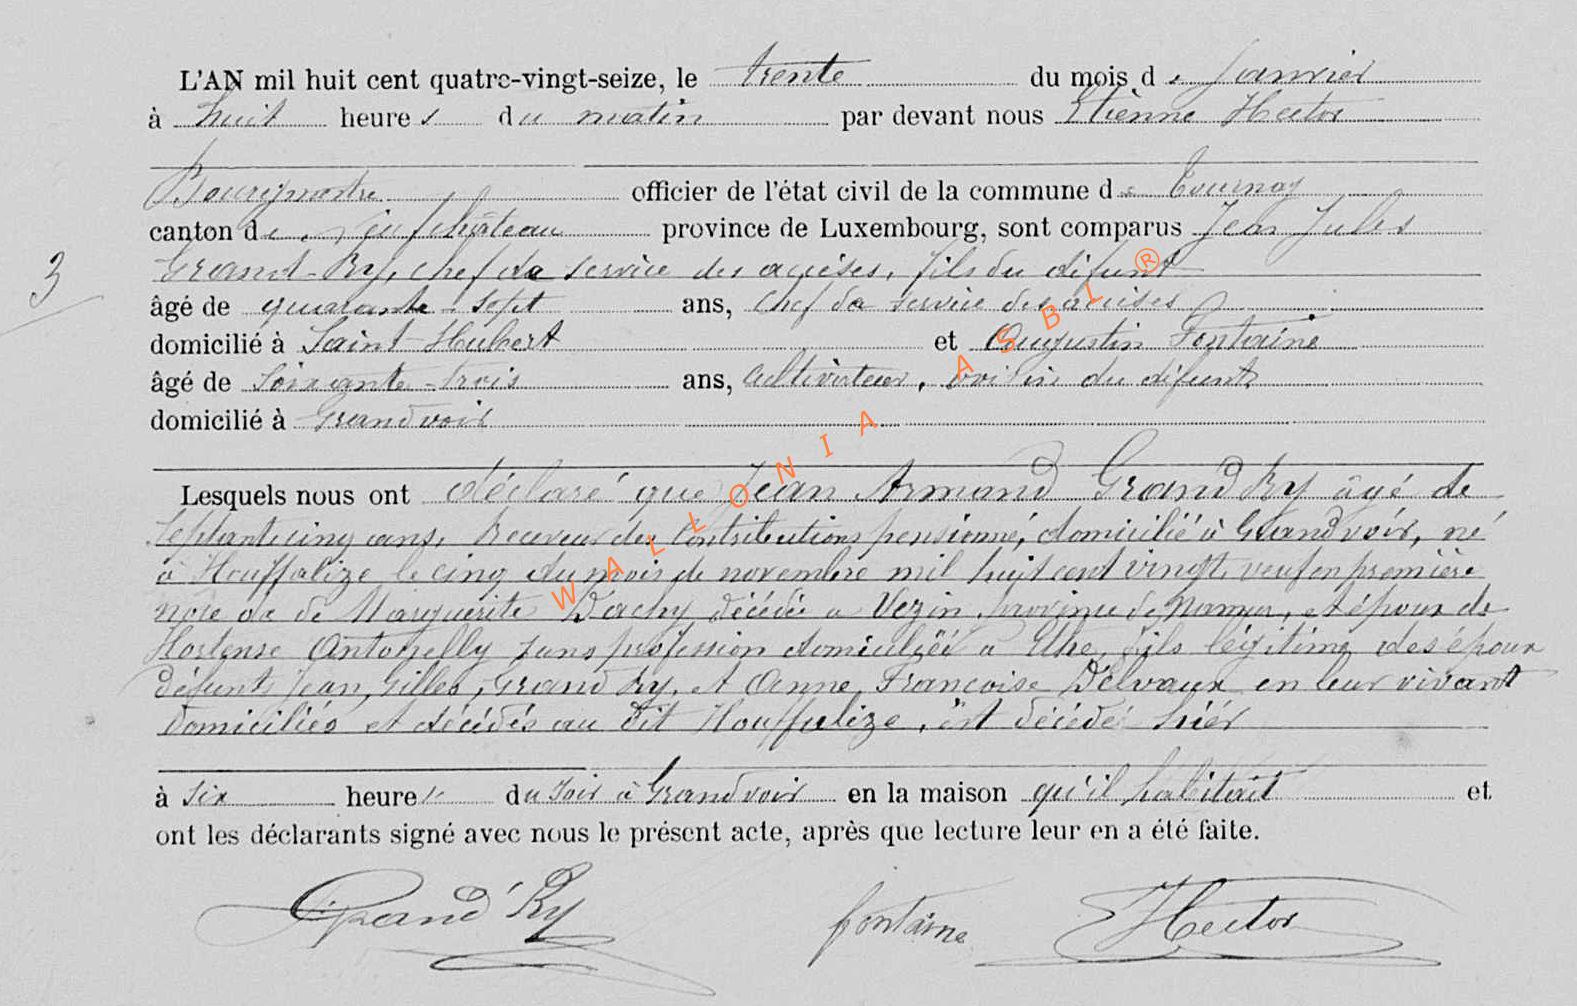 L'AN mil huit cent quatre-vingt-seize, le trente du mois de Janvier
à huit heures du matin par devant nous Etienne Hector
Bourgmestre officier de l'état civil de la commune de Tournay
canton de Neufchâteau province de Luxembourg, sont comparus Jean Jules
3
Grand-Ry, chef de service des accises, fils du défunt
âgé de quarante-sept ans, chef de service des accises
domicilié à Saint-Hubert et Augustin Fontaine
âgé de soixante-trois ans, cultivateur, voisin du défunt
domicilié à Grandvoir
Lesquels nous ont déclaré que Jean Armand Grand Ry âgé de
septante cinq ans, Receveur des Contributions pensionné, domicilié à Grandvoir, né
à Houffalize le cinq du mois de novembre mil huit cent vingt, veuf en première
noce de Marguerite Dachy décédée à Vezin, province de Namur, et époux de
Hortense Antonelly sans profession domiciliée à, fils légitime des époux
défunts Jean, Gilles, Grand Ry, et Anne, Françoise Delvaux en leur vivant
domiciliés et décédés au dit Houffalize, est décédé hiér
à six heures du soir à Grandvoir en la maison qu'il habitait et
ont les déclarants signé avec nous le présent acte, après que lecture leur en a été faite.
Grand'Ry fontaine Hector
WALLONIA ASBL ®